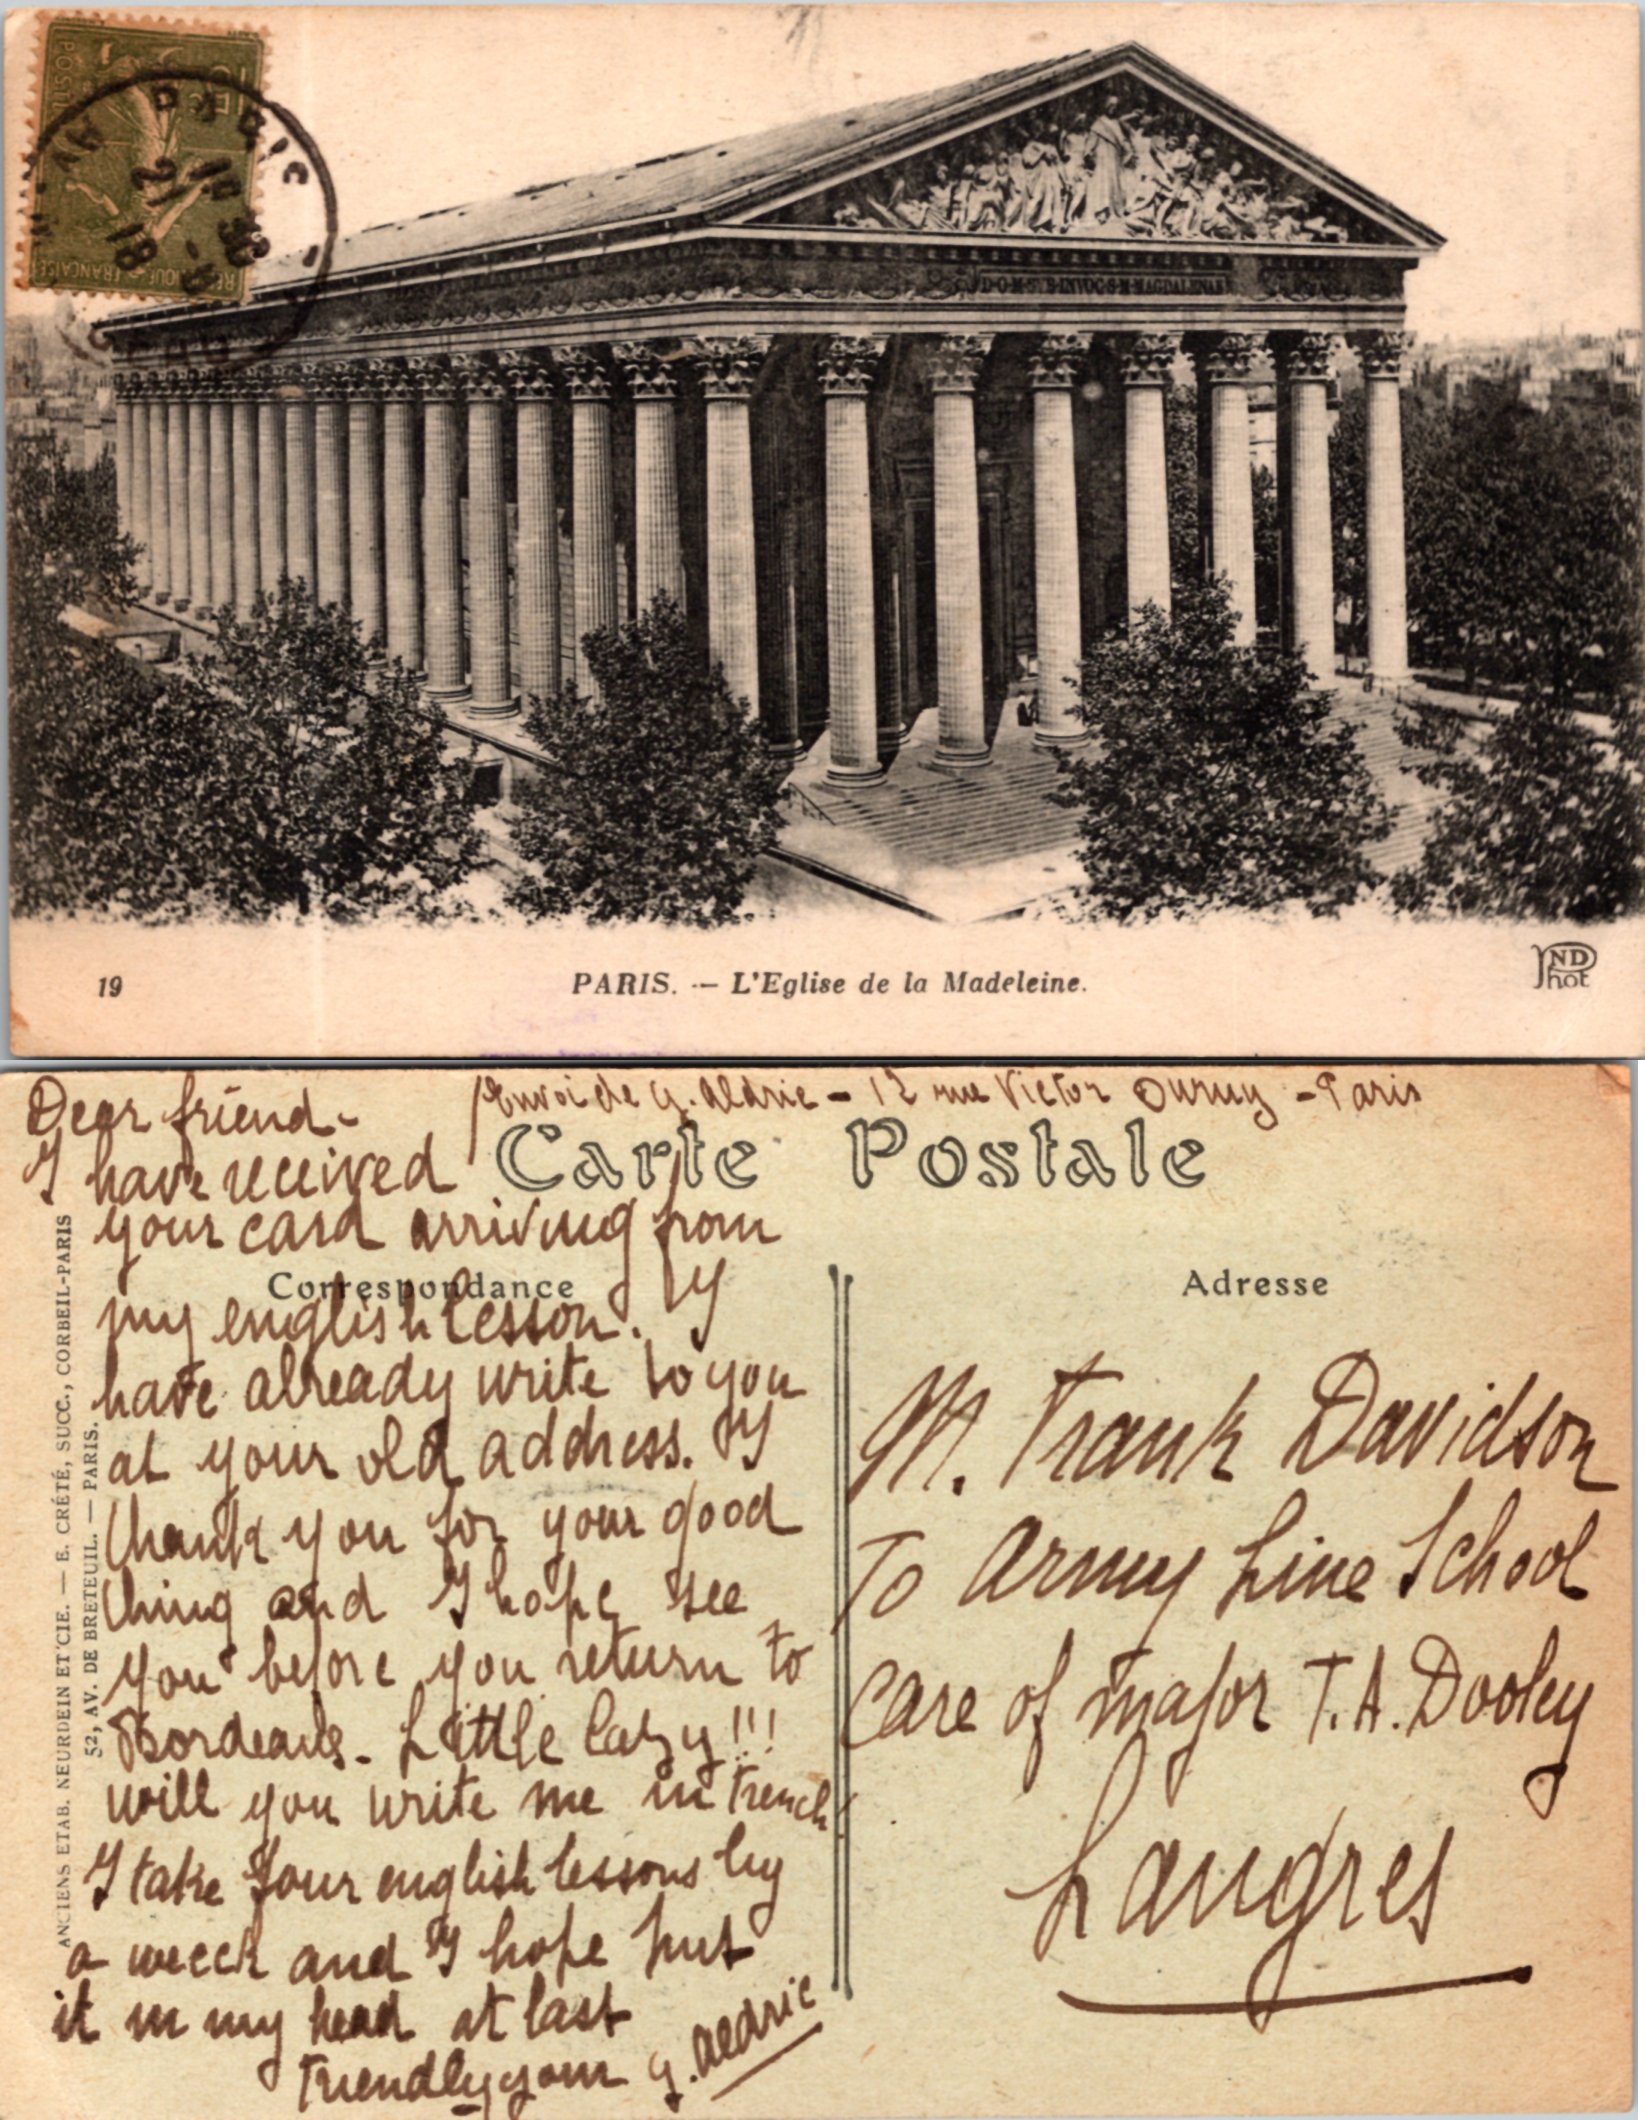 POSTES
REPUBLIQUE FRANÇAISE
D·O·M·S·B·INVOC·S·M·MAGDALENAE
19
PARIS. — L'Eglise de la Madeleine.
ND
Phot
Envoi de G. Aldric - 12 rue Victor Duruy - Paris
Carte Postale
Correspondance
Adresse
ANCIENS ETAB. NEURDEIN ET CIE. — E. CRÉTÉ, SUCC., CORBEIL-PARIS
52, AV. DE BRETEUIL. — PARIS.
Dear friend -
I have received
your card arriving from
my english lesson. I
have already write to you
at your old address. I
thank you for your good
thing and I hope see
you before you return to
Bordeaux - Little lazy!!!
will you write me in french
I take four english lessons by
a weeck and I hope put
it in my head at last
Friendly your G. Aldric
M. Frank Davidson
To Army Line School
Care of major T.A. Dooley
Langres